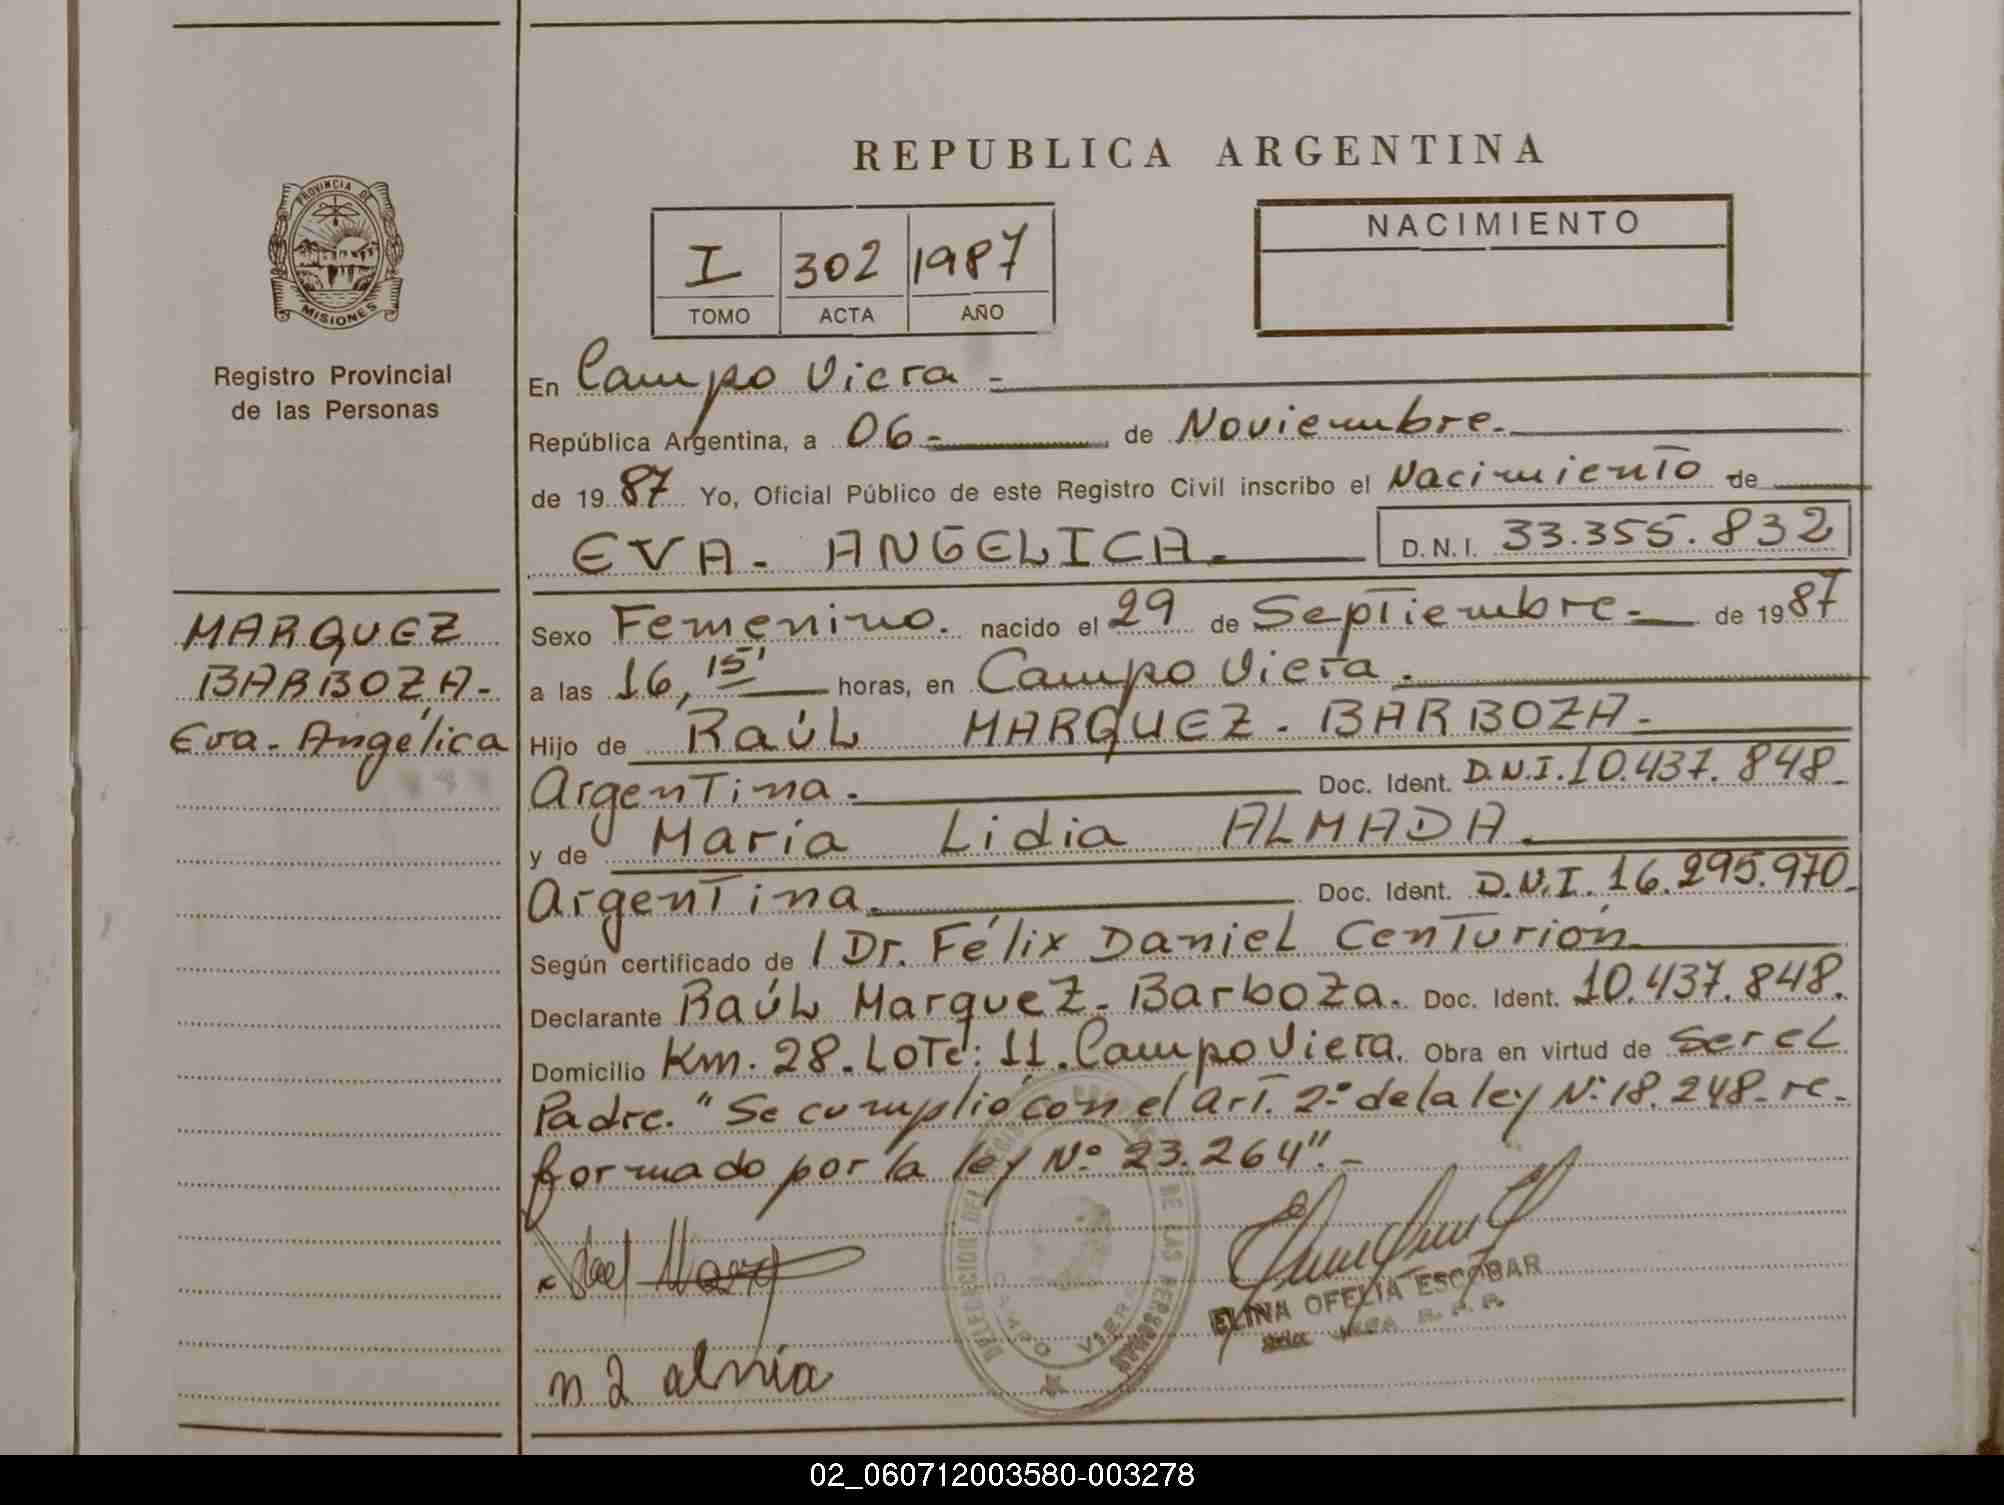 REPUBLICA ARGENTINA
PROVINCIA DE
MISIONES
Registro Provincial
de las Personas
I 302 1987
TOMO ACTA AÑO
NACIMIENTO
En Campo Viera -
República Argentina, a 06- de Noviembre.
de 1987 Yo, Oficial Público de este Registro Civil inscribo el Nacimiento de
EVA - ANGELICA. D.N.I. 33.355.832
MARQUEZ
BARBOZA-
Eva-Angélica
Sexo Femenino. nacido el 29 de Septiembre- de 1987
a las 16,15' horas, en Campo Viera.
Hijo de RaúL MARQUEZ - BARBOZA-
Argentina. Doc. Ident. D.N.I. 10.437.848-
y de María Lidia ALMADA.
Argentina. Doc. Ident. D.N.I. 16.295.970-
Según certificado de / Dr. Félix DanieL Centurión
Declarante RaúL MarqueZ-Barboza. Doc. Ident. 10.437.848.
Domicilio Km. 28. Lote: 11. Campo Viera. Obra en virtud de ser eL
Padre. "Se cumplió con el art. 2º de la ley Nº 18.248- re-
formado por la ley Nº 23.264".-
DELEGACION DEL DE LAS PERSONAS
CAMPO VIERA
ELINA OFELIA ESCOBAR
R. P. P.
02_060712003580-003278